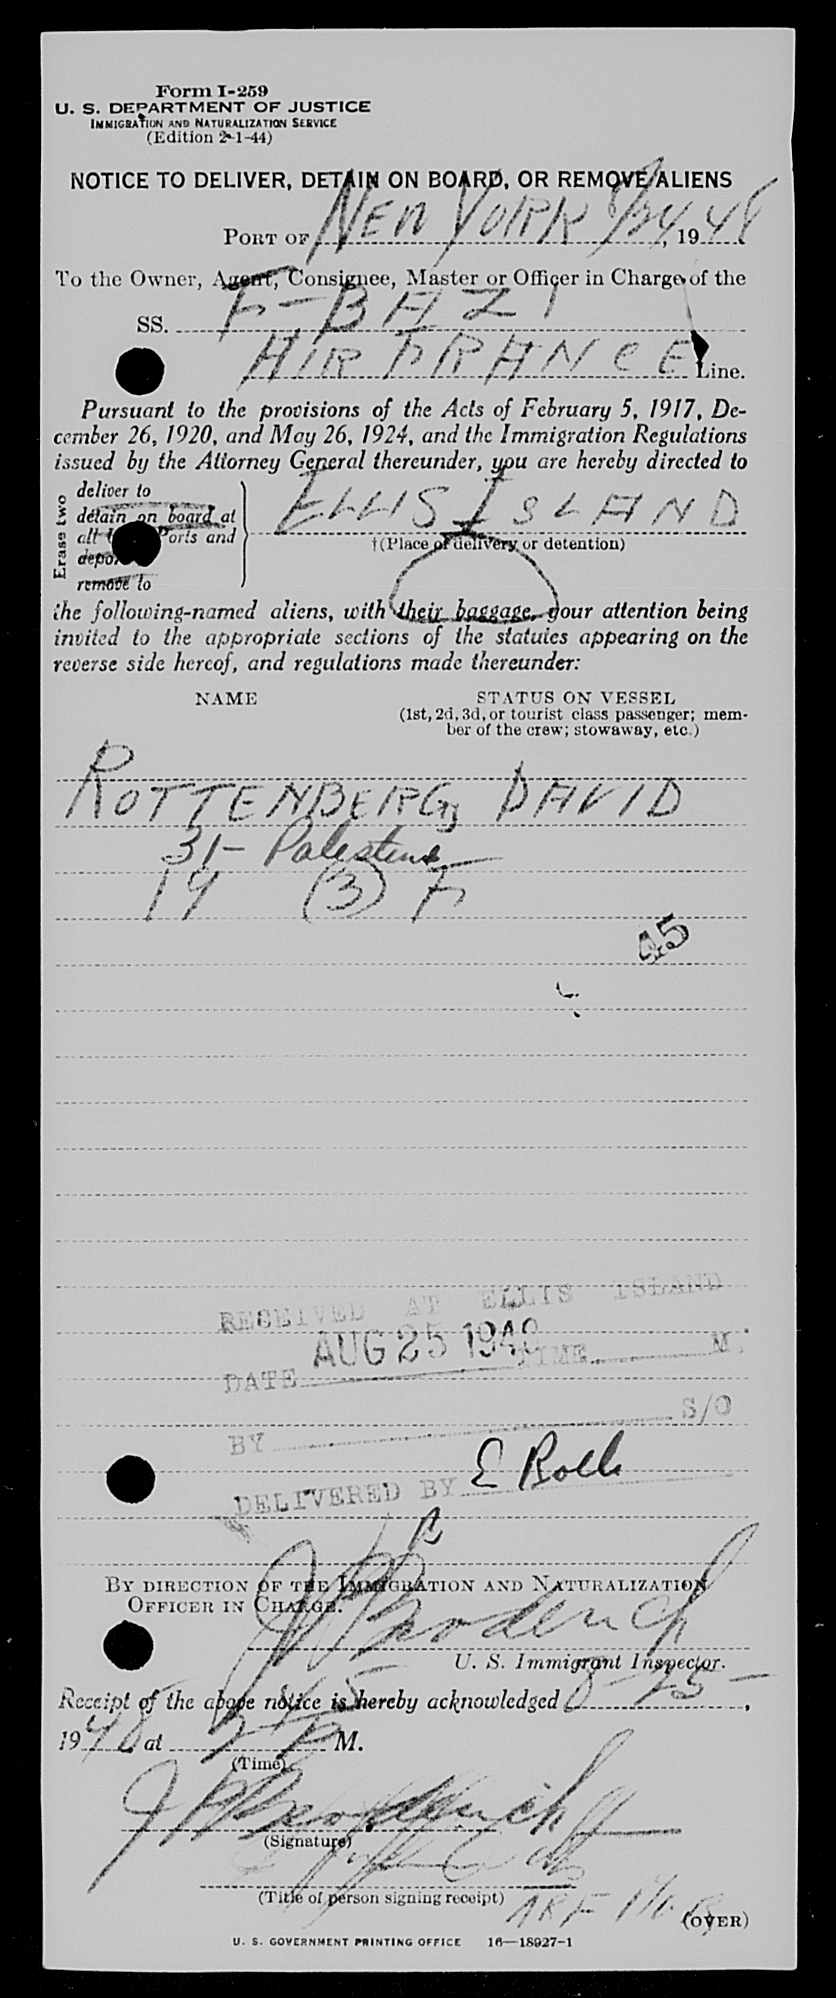 Form I-259
U. S. DEPARTMENT OF JUSTICE
IMMIGRATION AND NATURALIZATION SERVICE
(Edition 2-1-44)
NOTICE TO DELIVER, DETAIN ON BOARD, OR REMOVE ALIENS
PORT OF NEW YORK 8/24, 1948
To the Owner, Agent, Consignee, Master or Officer in Charge of the
SS. F-BAZI
AIR FRANCE Line.
Pursuant to the provisions of the Acts of February 5, 1917, De-
cember 26, 1920, and May 26, 1924, and the Immigration Regulations
issued by the Attorney General thereunder, you are hereby directed to
Erase two
deliver to
detain on board at
all Ports and
remove to
ELLIS ISLAND
†(Place of delivery or detention)
the following-named aliens, with their baggage, your attention being
invited to the appropriate sections of the statutes appearing on the
reverse side hereof, and regulations made thereunder:
NAME STATUS ON VESSEL
(1st, 2d, 3d, or tourist class passenger; mem-
ber of the crew; stowaway, etc.)
ROTTENBERG, DAVID
31- Palestine
(3) F
45
RECEIVED AT ELLIS ISLAND
DATE AUG 25 1948 TIME M.
BY S/O
DELIVERED BY E
BY DIRECTION OF THE IMMIGRATION AND NATURALIZATION
OFFICER IN CHARGE.
J Broderick
U. S. Immigrant Inspector.
Receipt of the above notice is hereby acknowledged 8-25-,
1948 at 245 P M.
(Time)
J Broderick
(Signature)
(Title of person signing receipt)
(OVER)
U. S. GOVERNMENT PRINTING OFFICE 16—18927-1